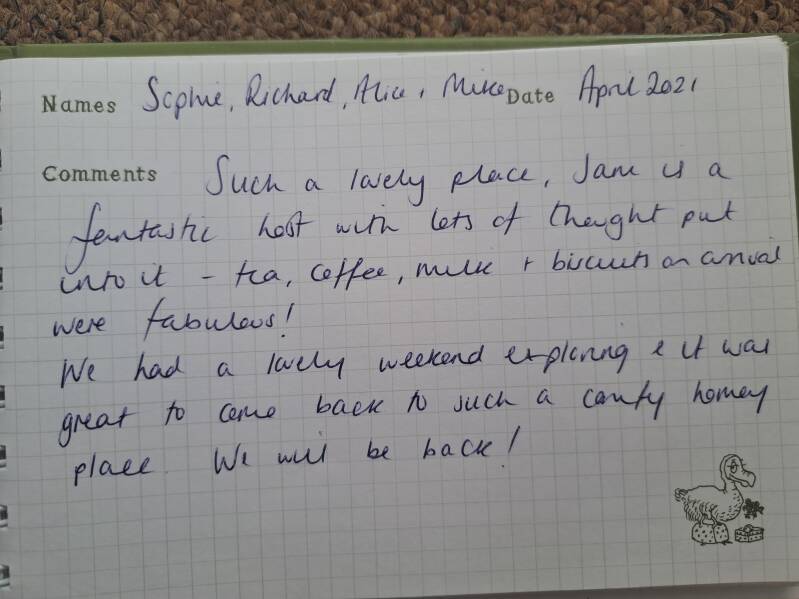 Names Sophie, Richard, Alice + Mike Date April 2021
Comments Such a lovely place, Jane is a
fantastic host with lots of thought put
into it - tea, coffee, milk + biscuits on arrival
were fabulous!
We had a lovely weekend exploring & it was
great to come back to such a comfy homey
place. We will be back!